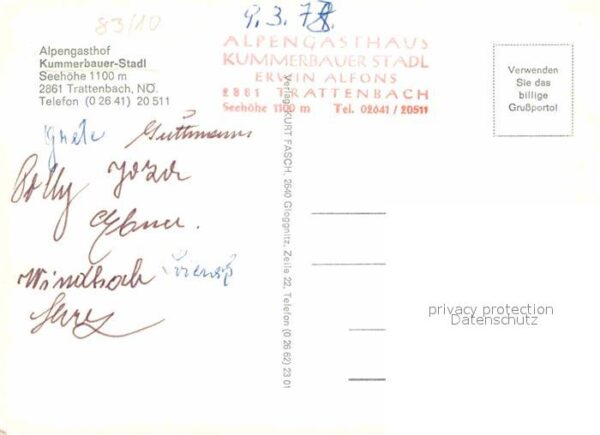 83/10
9.3.78.
Alpengasthof
Kummerbauer-Stadl
Seehöhe 1100 m
2881 Trattenbach, NÖ.
Telefon (0 26 41) 20 511
ALPENGASTHAUS
KUMMERBAUER STADL
ERWIN ALFONS
2881 TRATTENBACH
Seehöhe 1100 m Tel. 02641 / 20511
Verwenden
Sie das
billige
Grußporto!
Verlag KURT FASCH, 2640 Gloggnitz, Zeile 22, Telefon (0 26 62) 23 01
Grete Guttmann
Polly
Windbach
privacy protection
Datenschutz